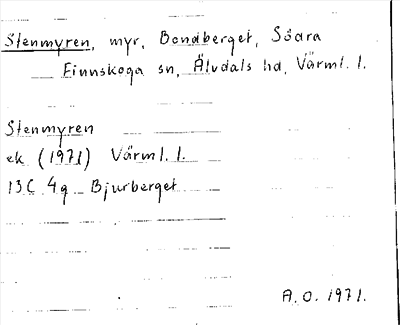 Stenmyren, myr, Bondberget, Södra
Finnskoga sn, Älvdals hd, Värml. l.
Stenmyren
ek (1971) Värml. l.
13C 4g Bjurberget
A.O. 1971.